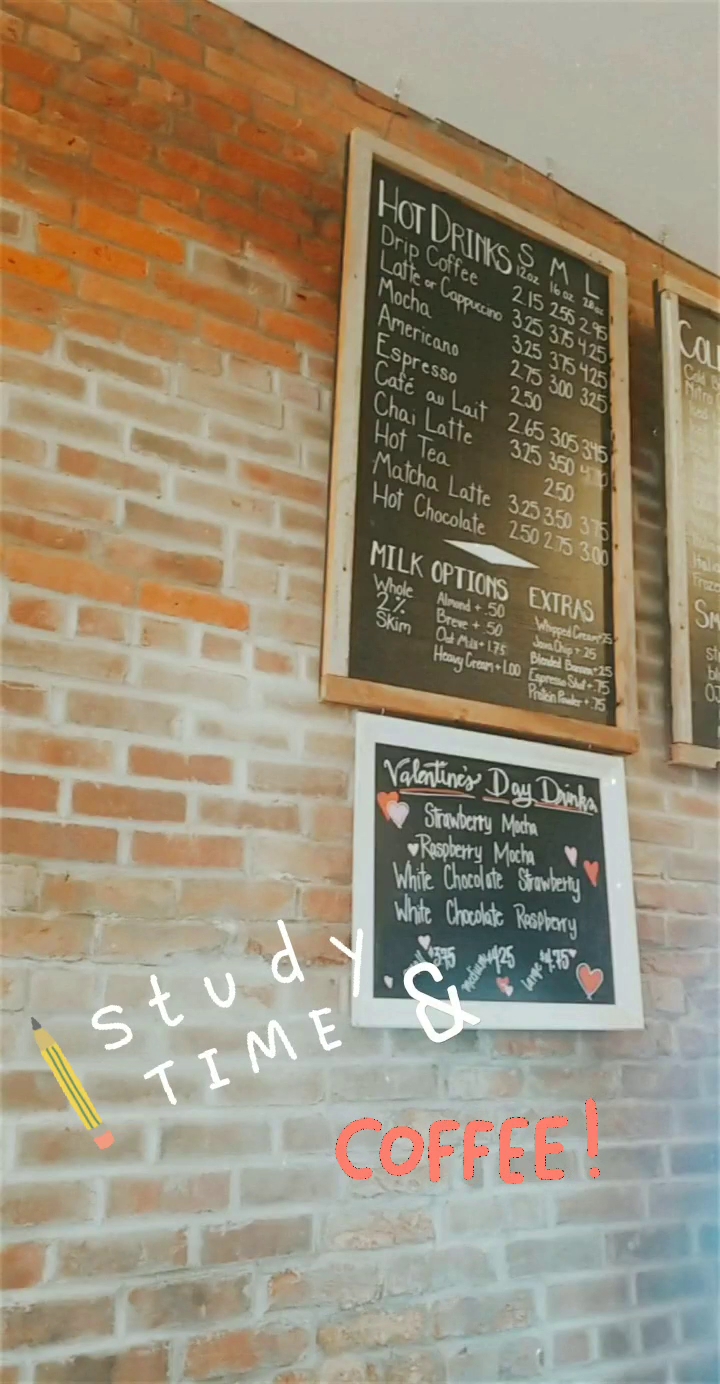 HOT DRINKS S M L
12oz 16oz 20oz
Drip Coffee 2.15 2.55 2.95
Latte or Cappuccino 3.25 3.75 4.25
Mocha 3.25 3.75 4.25
Americano 2.75 3.00 3.25
Espresso 2.50
Café au Lait 2.65 3.05 3.45
Chai Latte 3.25 3.50
Hot Tea 2.50
Matcha Latte 3.25 3.50 3.75
Hot Chocolate 2.50 2.75 3.00
MILK OPTIONS
Whole
2%
Skim
Almond + .50
Breve + .50
Oat Milk + 1.75
Heavy Cream + 1.00
EXTRAS
Whipped Cream + 25
Java Chip + 25
Blended Banana + 25
Espresso Shot + .75
Protein Powder + .75
Valentine's Day Drinks
Strawberry Mocha
Raspberry Mocha
White Chocolate Strawberry
White Chocolate Raspberry
$3.75 medium $4.25 large $4.75
study
TIME &
COFFEE!